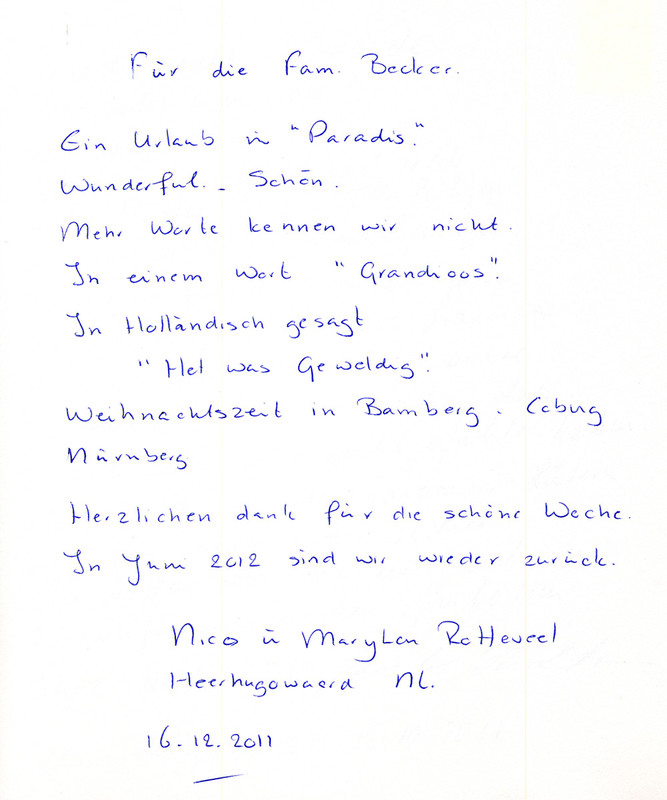 Für die Fam. Becker.
Ein Urlaub in "Paradis."
Wunderful. - Schön.
Mehr Worte kennen wir nicht.
In einem Wort "Grandioos".
In Holländisch gesagt
"Het was Geweldig".
Weihnachtszeit in Bamberg. Cobug
Nürnberg
Herzlichen dank für die schöne Woche.
In Juni 2012 sind wir wieder zurück.
Nico ü
Heerhugowaard NL.
16.12.2011